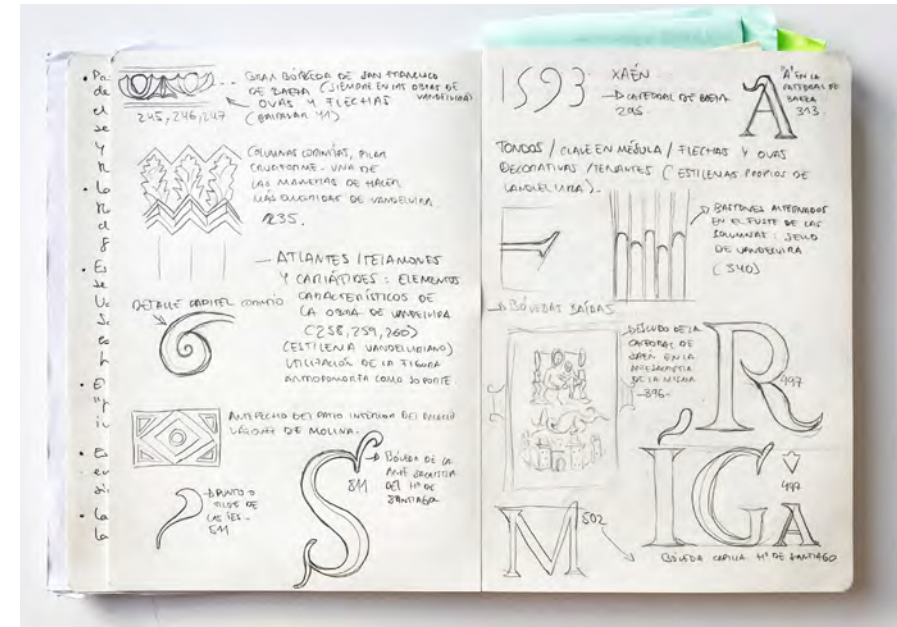 GRAN BÓVEDA DE SAN FRANCISCO
DE BAEZA (SIEMPRE EN LAS OBRAS DE VANDELVIRA)
OVAS Y FLECHAS
245, 246, 247
COLUMNAS CORINTIAS, PILAR
CRUCIFORME. UNA DE
LAS MANERAS DE HACER
MÁS QUERIDAS DE VANDELVIRA
235.
ATLANTES / TELAMONES
Y CARIÁTIDES: ELEMENTOS
CARACTERÍSTICOS DE
LA OBRA DE VANDELVIRA
(258, 259, 260)
(ESTILEMA VANDELVIRIANO)
UTILIZACIÓN DE LA FIGURA
ANTROPOMORFA COMO SOPORTE.
DETALLE CAPITEL CORINTIO
ANTEPECHO DEL PATIO INTERIOR DEL PALACIO
VÁZQUEZ DE MOLINA.
PUNTO O
TILDE DE
LAS ÍES.
511
S
511
BÓVEDA DE LA
ANTE SACRISTÍA
DEL Hº DE
SANTIAGO
1593
XAÉN
CATEDRAL DE BAEZA
295.
A
"A" EN LA
CATEDRAL DE
BAEZA
313.
TONDOS / CLAVE EN MÉNSULA / FLECHAS Y OVAS
DECORATIVAS / TENANTES (ESTILEMAS PROPIOS DE
VANDELVIRA).
BASTONES ALTERNADOS
EN EL FUSTE DE LAS
COLUMNAS: SELLO
DE VANDELVIRA
(340)
BÓVEDAS BAÍDAS
ESCUDO DE LA
CATEDRAL DE
JAÉN EN LA
ANTESACRISTÍA
DE LA MISMA
-396-
R
497
ÍG
497
A
M
502
BÓVEDA CAPILLA Hº DE SANTIAGO